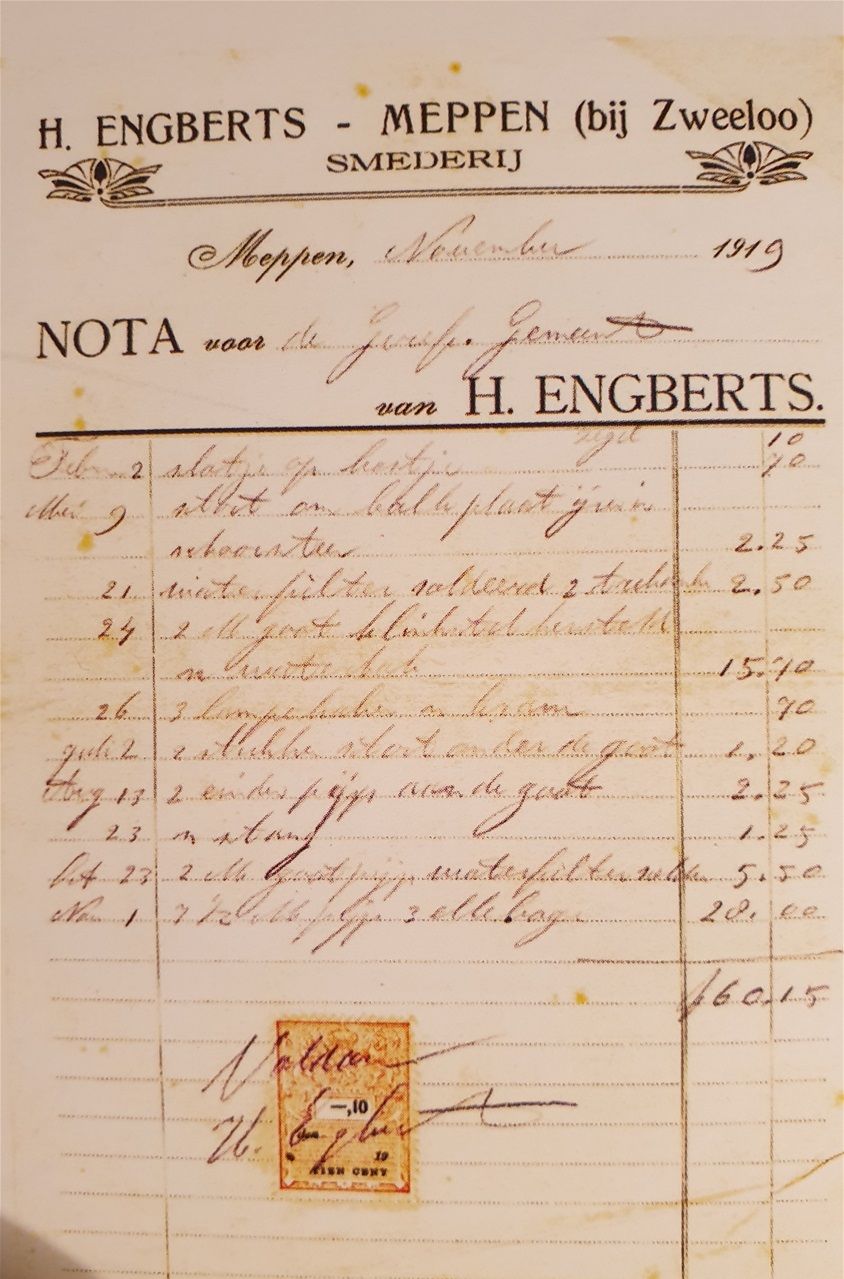 H. ENGBERTS - MEPPEN (bij Zweeloo)
SMEDERIJ
Meppen, November 1919
NOTA voor de Geref. Gemeent
van H. ENGBERTS.
Zegel 10
Febr 2 slotje op kastje 70
Mei 9 slot an balk plaat ijzer in
schoorsteen 2.25
21 waterfilter soldeerd 2 2.50
24 2 M goot hersteld
n 15.70
26 3 n kram 70
Juli 2 2 stukke sloot onder de goot 1.20
Aug 13 2 einder pijp aan de goot 2.25
23 n stang 1.25
Oct 23 2 M goot pijp waterfilter 5.50
Nov 1 7 1/2 M pijp 3 elleboge 28.00
f 60.15
Voldaan
H. Engberts
-,10
19
TIEN CENT